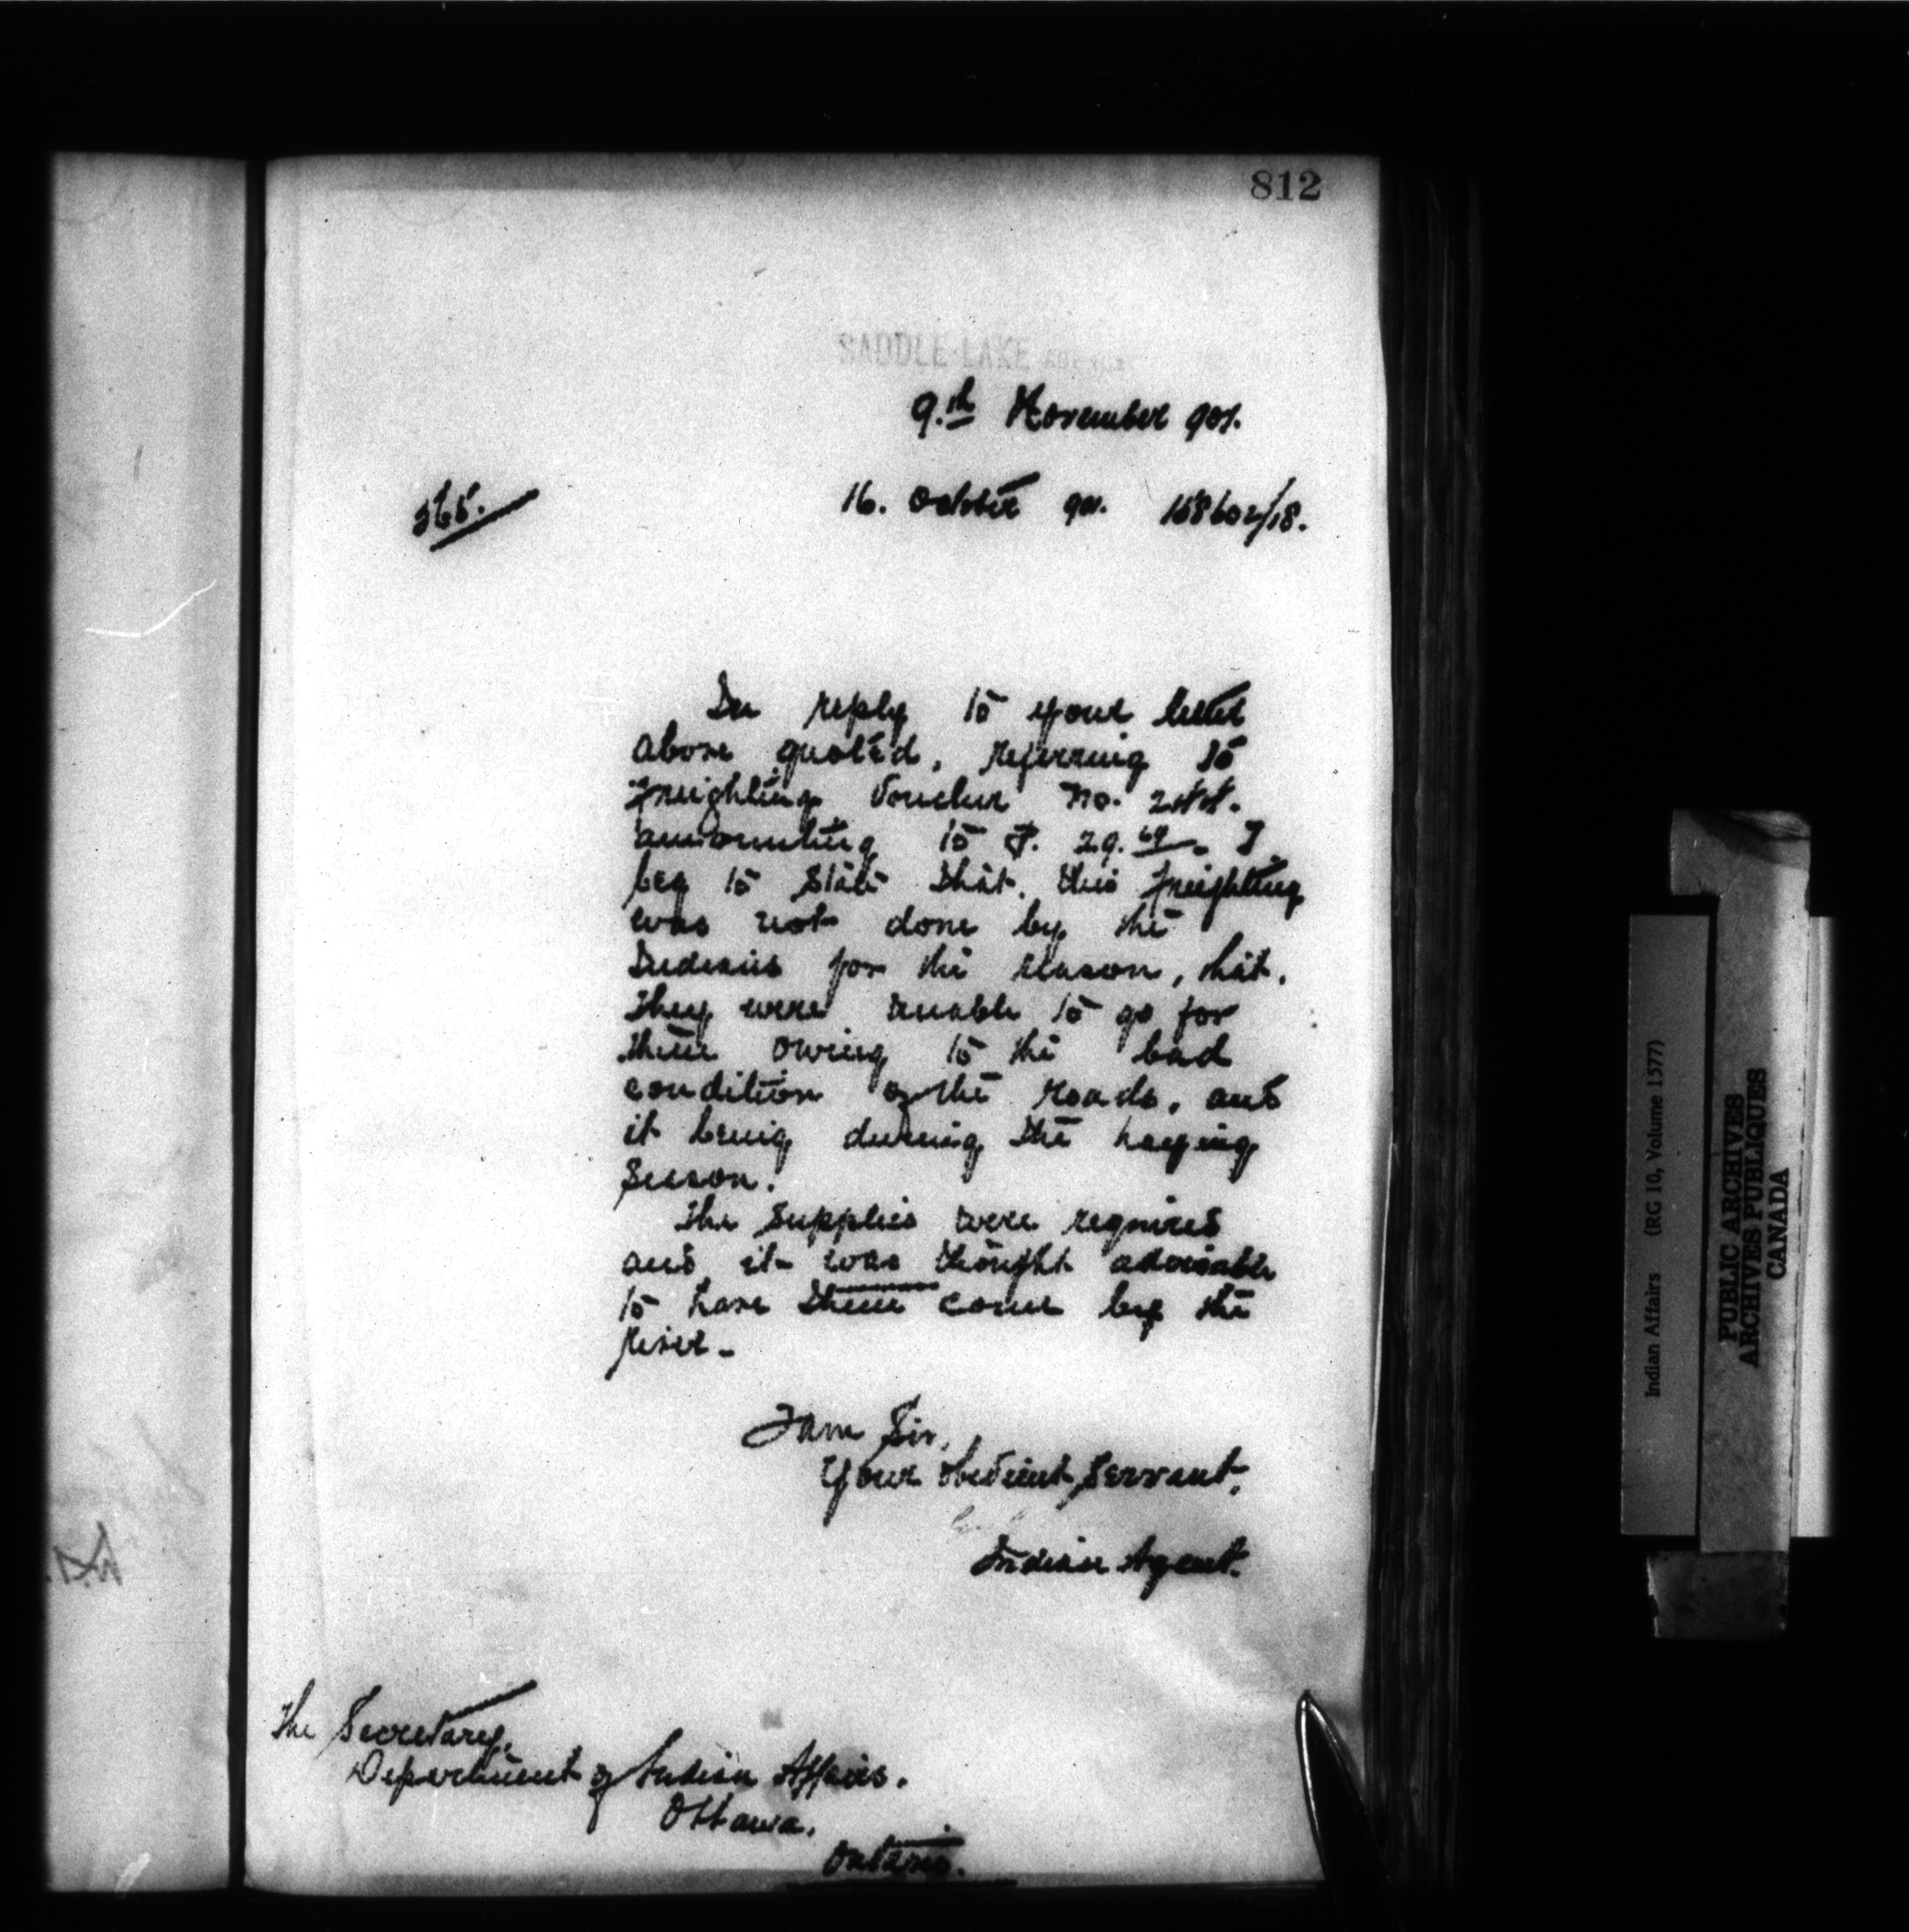 812
SADDLE LAKE AGENCY
9.th November 901.
565.
16. October 901. 158602/18.
In reply to your letter
above quoted, referring to
freighting Voucher No. 244.
amounting to $. 29.69. I
beg to state that, this freighting
was not done by the
Indians for the reason, that.
they were unable to go for
them owing to the bad
condition of the roads, and
it being during the haying
season.
The supplies were required
and it was thought advisable
to have them come by the
river.
I am Sir,
Your obedient Servant,
Indian Agent.
The Secretary,
Department of Indian Affairs.
Ottawa.
Ontario.
Indian Affairs (RG 10, Volume 1577)
PUBLIC ARCHIVES
ARCHIVES PUBLIQUES
CANADA